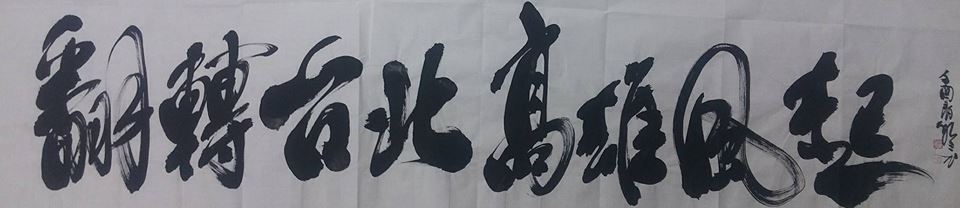 翻轉台北高雄風起